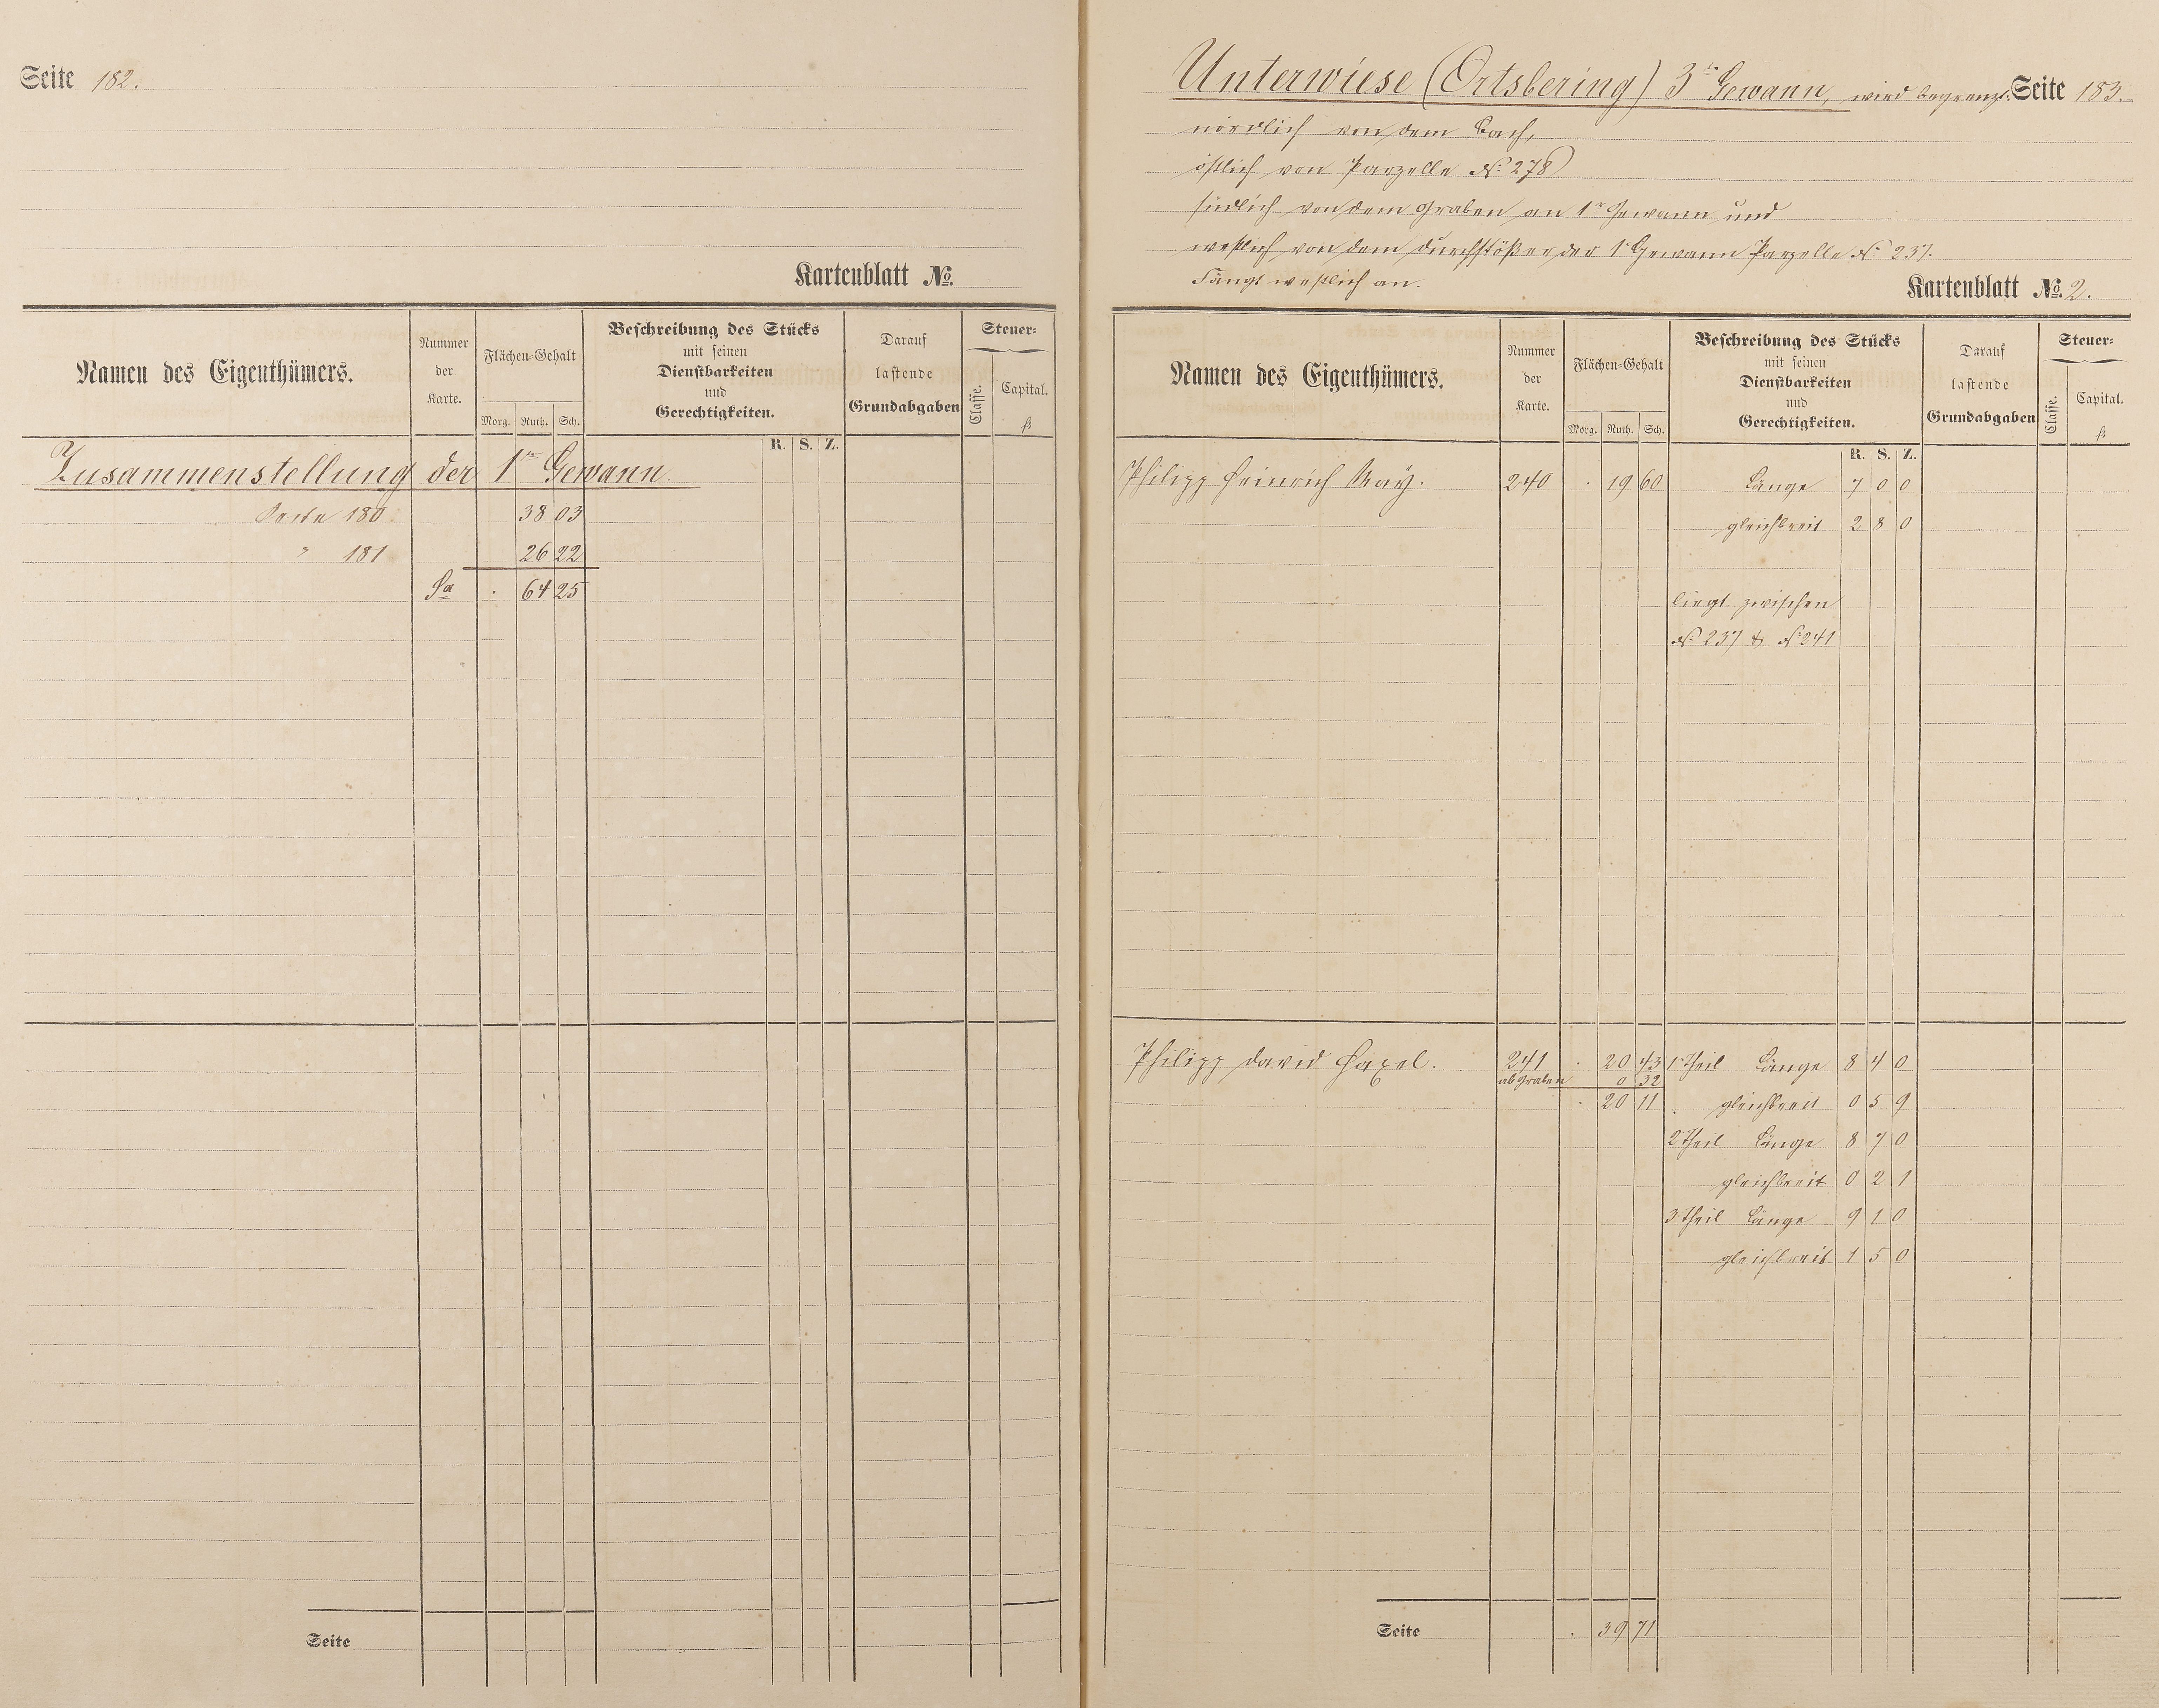 Seite 182.
Kartenblatt No.
Namen des Eigenthümers.
Nummer
der
Karte.
Flächen-Gehalt
Morg. Ruth. Sch.
Beschreibung des Stücks
mit seinen
Dienstbarkeiten
und
Gerechtigkeiten.
Darauf
lastende
Grundabgaben
Steuer-
Classe.
Capital.
fl
R. S. Z.
Zusammenstellung der 1ten Gewann.
Seite 180. 38 03
" 181 26 22
Sa . 64 25
Seite
Unterwiese (Ortsbering) 3te Gewann, wird begrenzt: Seite 183.
nördlich von dem Bach,
östlich von Parzelle No. 278
südlich von dem Graben an 1r Gewann und
westlich von dem Durchstößer der 1r Gewann Parzelle No. 237.
Fängt westlich an.
Kartenblatt No. 2.
Namen des Eigenthümers.
Nummer
der
Karte.
Flächen-Gehalt
Morg. Ruth. Sch.
Beschreibung des Stücks
mit seinen
Dienstbarkeiten
und
Gerechtigkeiten.
Darauf
lastende
Grundabgaben
Steuer-
Classe.
Capital.
fl
R. S. Z.
Philipp Heinrich May. 240 . 19 60 Länge 7 0 0
gleichbreit 2 8 0
liegt zwischen
No. 237 & No. 241
Philipp David Haxel. 241 . 20 43 1r Theil Länge 8 4 0
ab Graben 0 32
. 20 11 gleichbreit 0 5 9
2r Theil Länge 8 7 0
gleichbreit 0 2 1
3r Theil Länge 9 1 0
gleichbreit 1 5 0
Seite . 39 71